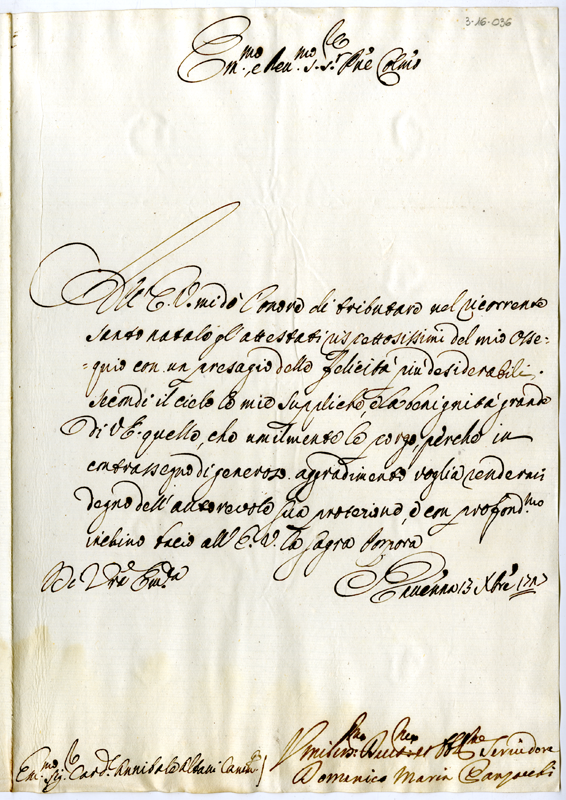 3-16-036
Em.mo e Reu.mo S.r S.r Pne Colmo
All' E. V. mi dò l'onore di tributare nel ricorrente
santo natale gl'attestati rispettosissimi del mio osse=
=quio con un presagio delle felicità più desiderabili.
Secondi il cielo le mie suppliche, e la benignità grande
di V. E. quelle, che umilmente le porgo, perchè in
contrassegno di generoso aggradimento voglia rendermi
degno dell' autorevole sua protezione, e con profond.mo
inchino bacio all' E. V. la sagra Porpora
Di V.ra Em.za
Ravenna 13 Xbre
Em.mo Sig. Card. Annibale Albani
Seruidore
Domenico Maria